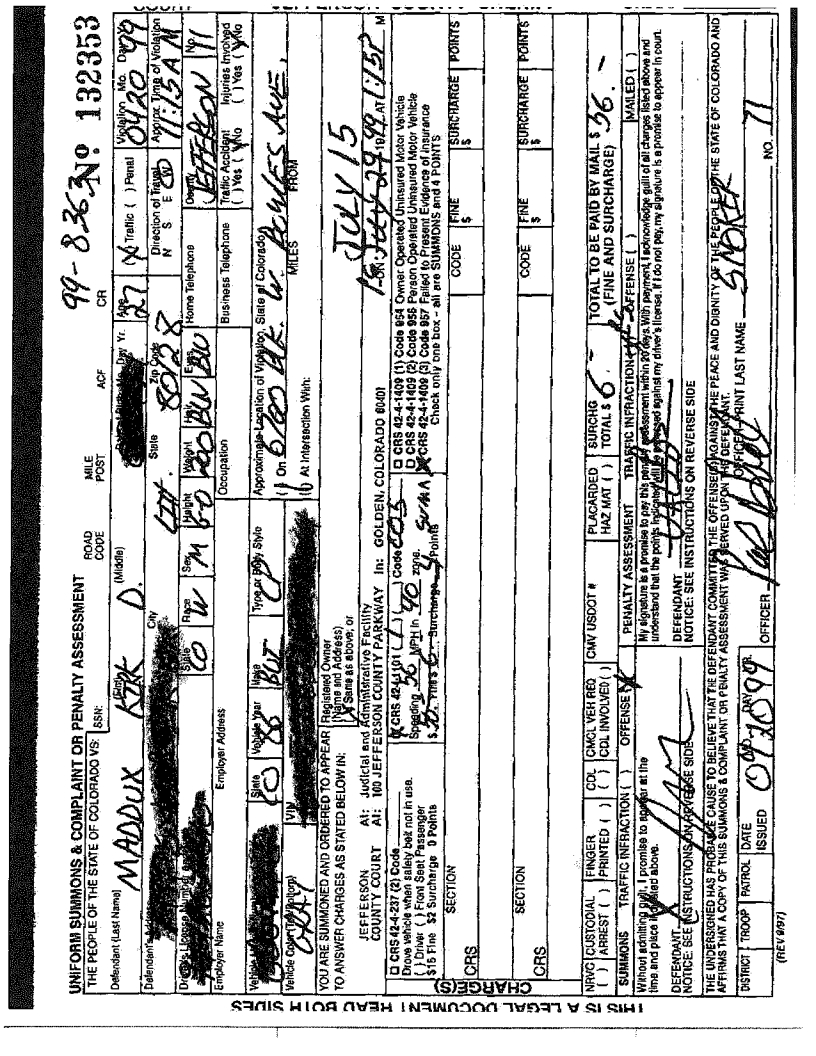 COURT JEFFERSON COUNTY SHERIFF
99-8363 No 132353
UNIFORM SUMMONS & COMPLAINT OR PENALTY ASSESSMENT
ROAD CODE MILE POST ACF CR
THE PEOPLE OF THE STATE OF COLORADO VS: SSN: (X) Traffic ( ) Penal Violation Mo. Day Yr.
04 20 99
Defendant (Last Name) (First) (Middle) Day Yr. Age
MADDUX KIRK D. 27
Direction of Travel N S E W Approx. Time of Violation
11:15 A M
Defendant's Address City State Zip Code
LIT. 80128
Driver's License Number State Race Sex Height Weight Hair Eyes Home Telephone County No.
CO W M 60 200 JEFFERSON 11
Employer Name Employer Address Occupation Business Telephone Traffic Accident ( ) Yes (X) No Injuries Involved ( ) Yes (X) No
State Vehicle Year Make Type or Body Style Approximate Location of Violation, State of Colorado
CO 86 CP ( ) On 6700 BLK. W. BOWLES AVE.
MILES FROM
Vehicle Color (Top/Bottom) VIN ( ) At Intersection With:
GRAY
YOU ARE SUMMONED AND ORDERED TO APPEAR TO ANSWER CHARGES AS STATED BELOW IN:
Registered Owner (Name and Address)
Same as above, or
JULY 15
JEFFERSON COUNTY COURT At: Judicial and Administrative Facility
At: 100 JEFFERSON COUNTY PARKWAY In: GOLDEN, COLORADO 80401
ON: JULY 29 1999 AT 1:15P M
CHARGE(S)
CRS 42-4-237 (2) Code
Drove vehicle when safety belt not in use.
( ) Driver ( ) Front Seat Passenger
$15 Fine $2 Surcharge 0 Points
CRS 42-4-1101 (1) Code
Speeding 50 MPH in 40 zone.
Surcharge 4 Points
CRS 42-4-1409 (1) Code 954 Owner Operated Uninsured Motor Vehicle
CRS 42-4-1409 (2) Code 956 Person Operated Uninsured Motor Vehicle
CRS 42-4-1409 (3) Code 957 Failed to Present Evidence of Insurance
Check only one box - all are SUMMONS and 4 POINTS
CRS SECTION CODE FINE $ SURCHARGE $ POINTS
CRS SECTION CODE FINE $ SURCHARGE $ POINTS
NRVC ( ) CUSTODIAL ARREST ( ) FINGER PRINTED ( ) CDL ( ) CMCL VEH REQ CDL INVOLVED ( ) CMV USDOT # PLACARDED HAZ MAT ( ) SURCHG TOTAL $ 6.- TOTAL TO BE PAID BY MAIL $ 36.-
(FINE AND SURCHARGE)
SUMMONS TRAFFIC INFRACTION ( ) OFFENSE (X) PENALTY ASSESSMENT TRAFFIC INFRACTION OFFENSE ( ) MAILED ( )
Without admitting guilt, I promise to appear at the time and place indicated above.
My signature is a promise to pay this penalty assessment within 20 days. With payment, I acknowledge guilt of all charges listed above and understand that the points indicated will be assessed against my driver's license. If I do not pay, my signature is a promise to appear in court.
DEFENDANT X
NOTICE: SEE INSTRUCTIONS ON REVERSE SIDE
DEFENDANT
NOTICE: SEE INSTRUCTIONS ON REVERSE SIDE
THE UNDERSIGNED HAS PROBABLE CAUSE TO BELIEVE THAT THE DEFENDANT COMMITTED THE OFFENSE(S) AGAINST THE PEACE AND DIGNITY OF THE PEOPLE OF THE STATE OF COLORADO AND
AFFIRMS THAT A COPY OF THIS SUMMONS & COMPLAINT OR PENALTY ASSESSMENT WAS SERVED UPON THE DEFENDANT.
DISTRICT TROOP PATROL DATE ISSUED MO. DAY YR. OFFICER OFFICER - PRINT LAST NAME NO.
04 20 99 SMOKER 71
(REV 9/97)
THIS IS A LEGAL DOCUMENT READ BOTH SIDES